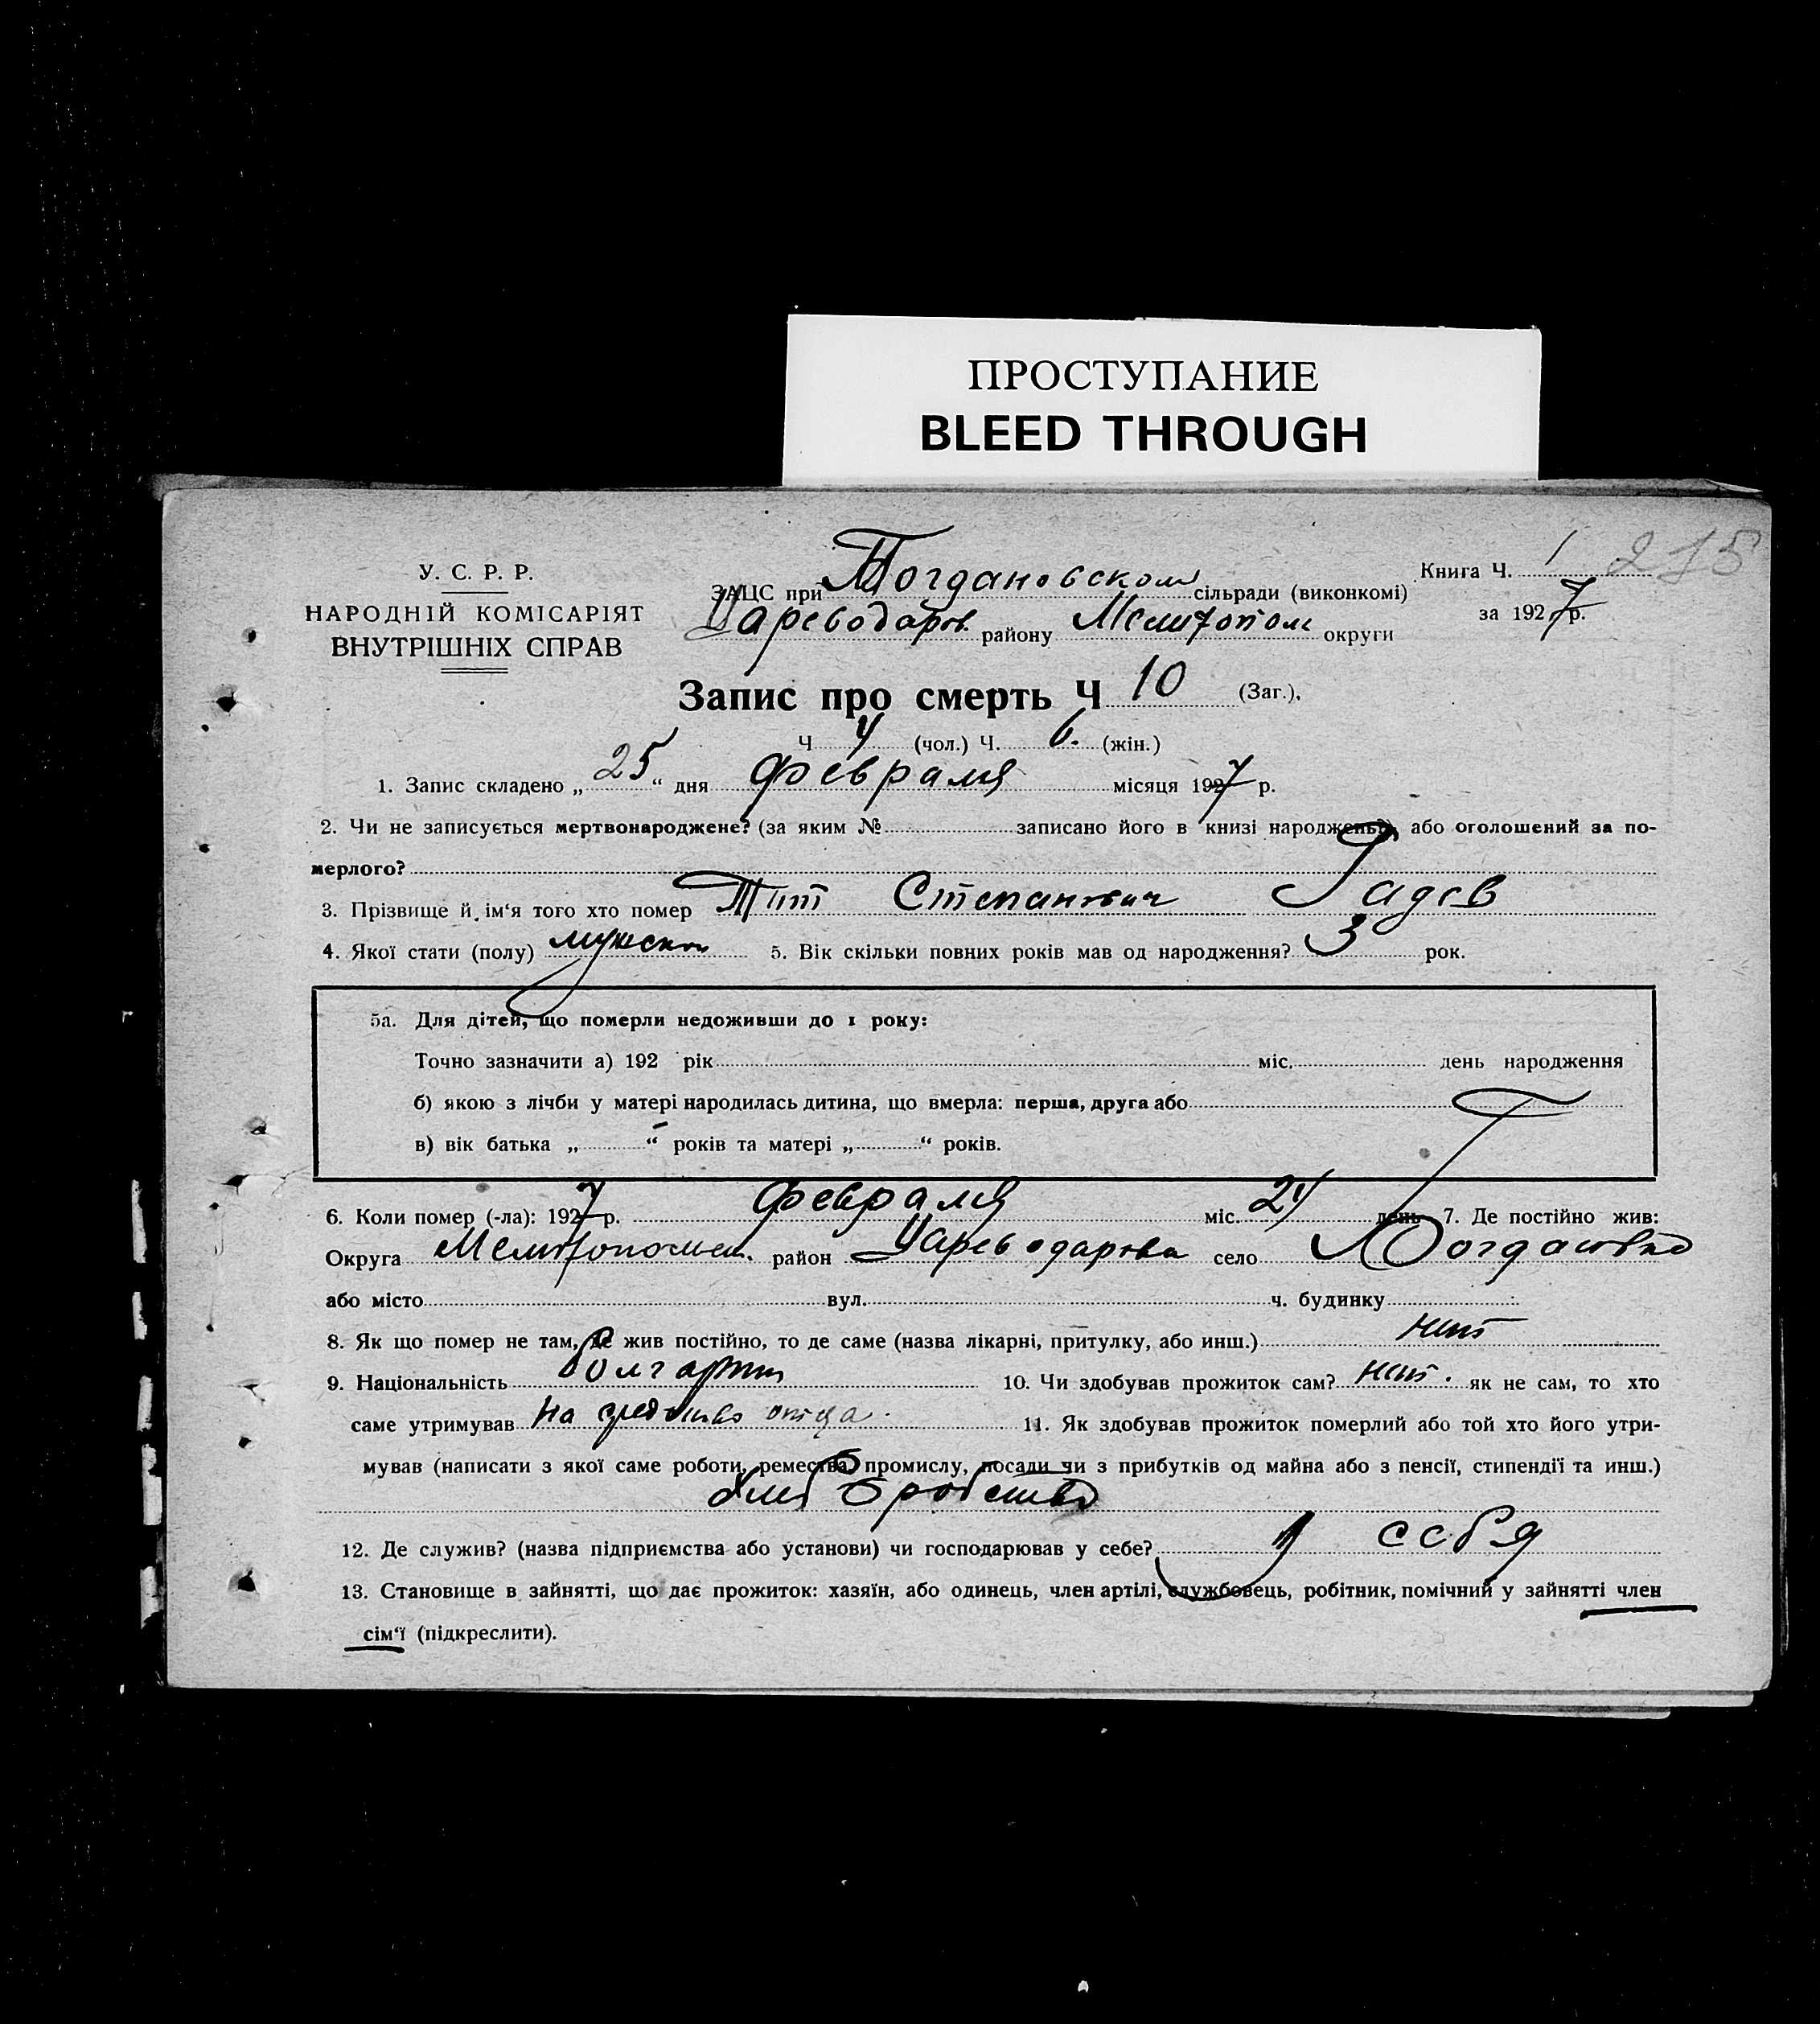 ПРОСТУПАНИЕ
BLEED THROUGH
У. С. Р. Р.
НАРОДНІЙ КОМІСАРІЯТ
ВНУТРІШНІХ СПРАВ
ЗАЦС при Богдановском сільради (виконкомі)
Цареводаров. району Мелитопол округи
Книга Ч. 1 215
за 1927 р.
Запис про смерть Ч 10 (Заг.).
Ч 4 (чол.) Ч. 6. (жін.)
1. Запис складено „ 25 “ дня февраля місяця 1927 р.
2. Чи не записується мертвонароджене? (за яким № записано його в книзі народжень?) або оголошений за по-
мерлого?
3. Прізвище й ім‘я того хто помер Тит Степанович Гадев
4. Якої стати (полу) мужской 5. Вік скільки повних років мав од народження? 3 рок.
5а. Для дітей, що померли недоживши до 1 року:
Точно зазначити а) 192 рік міс. день народження
б) якою з лічби у матері народилась дитина, що вмерла: перша, друга або
в) вік батька „ “ років та матері „ “ років.
6. Коли помер (-ла): 1927 р. февраля міс. 24 день 7. Де постійно жив:
Округа Мелитопольск. район Цареводарова село Богдановка
або місто вул. ч. будинку
8. Як що помер не там, де жив постійно, то де саме (назва лікарні, притулку, або инш.) нет
9. Національність болгарин 10. Чи здобував прожиток сам? нет. як не сам, то хто
саме утримував На средство отца. 11. Як здобував прожиток померлий або той хто його утри-
мував (написати з якої саме роботи, ремества, промислу, посади чи з прибутків од майна або з пенсії, стипендії та инш.)
Хлебробство
12. Де служив? (назва підприємства або установи) чи господарював у себе? У себя
13. Становище в зайнятті, що дає прожиток: хазяїн, або одинець, член артілі, службовець, робітник, помічний у зайнятті член
сім‘ї (підкреслити).